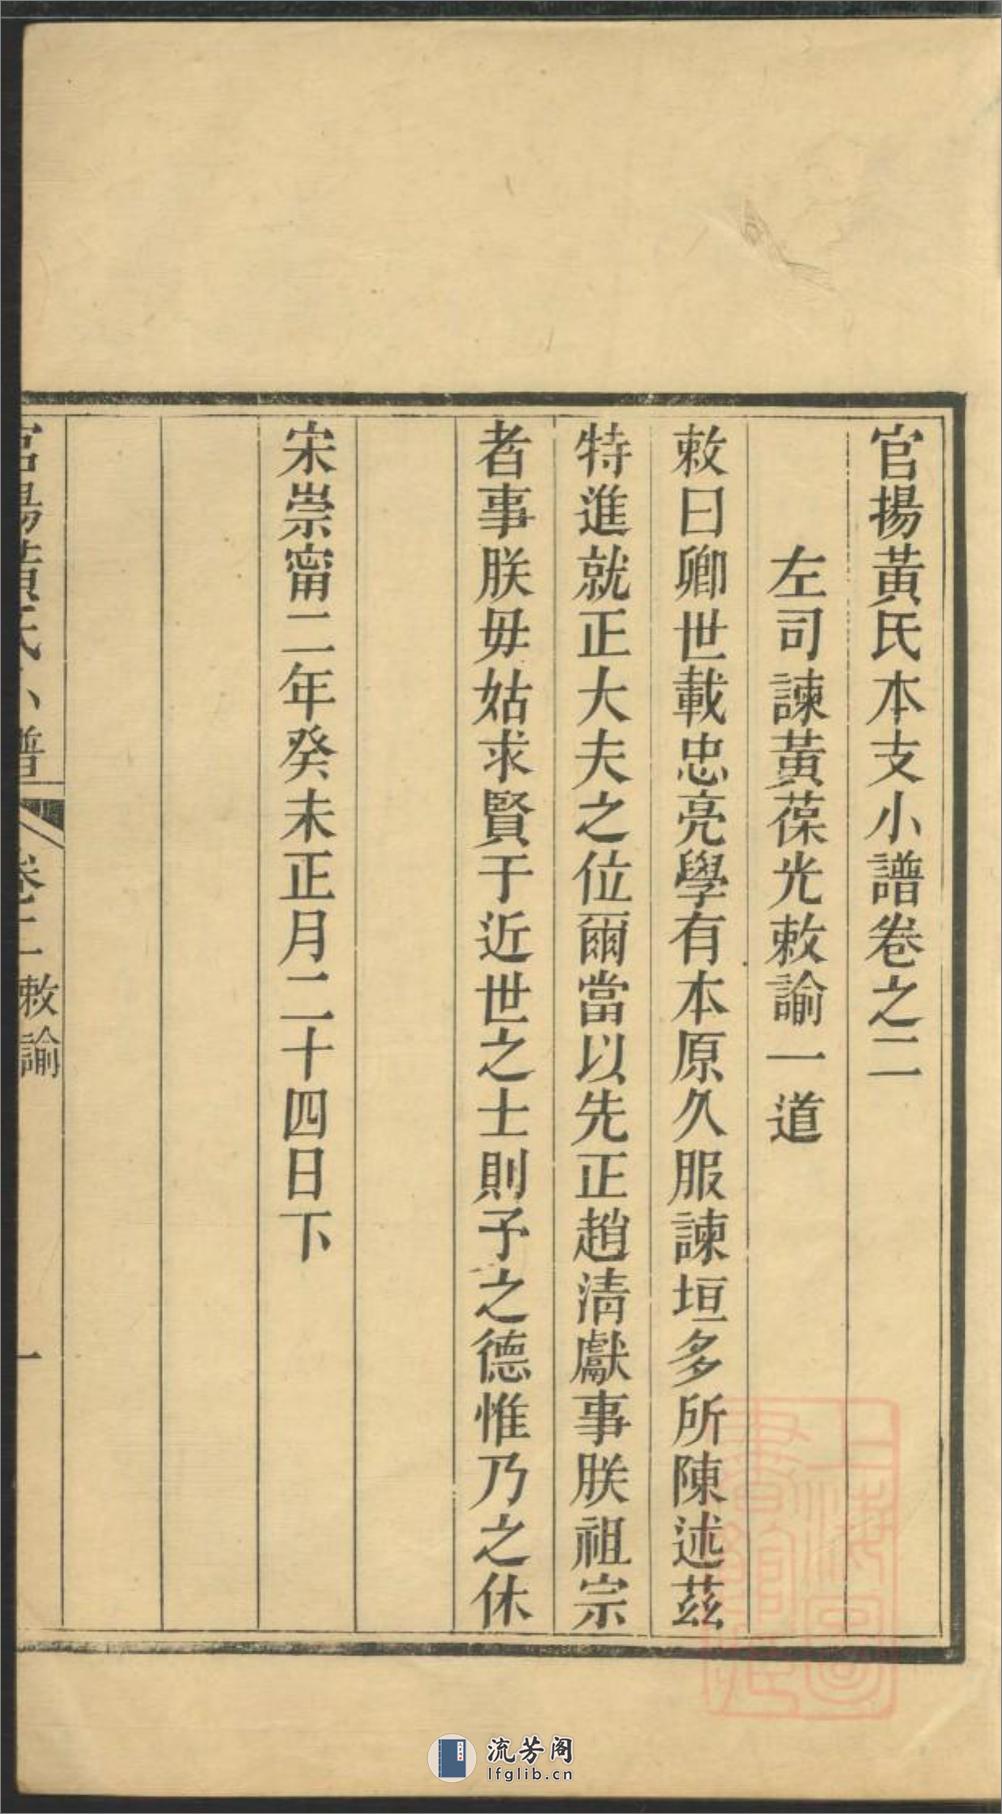 官揚黃氏本支小譜卷之二
左司諫黃葆光敕諭一道
敕曰卿世載忠亮學有本原久服諫垣多所陳述茲
特進就正大夫之位爾當以先正趙清獻事朕祖宗
者事朕毋姑求賢于近世之士則予之德惟乃之休
宋崇甯二年癸未正月二十四日下
官揚黃氏小譜 卷二 敕諭 一
上海圖書館藏
流芳阁
lfglib.cn